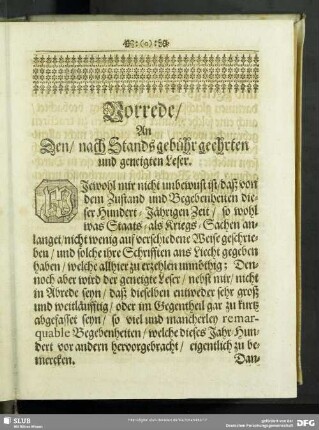 :(o):
Vorrede/
An
Den/ nach Stands gebühr geehrten
und geneigten Leser.
WJewohl mir nicht unbewust ist daß von
dem Zustand und Begebenheiten die-
ser Hundert-Jährigen Zeit/ so wohl
was Staats- als Kriegs-Sachen an-
langet/nicht wenig auf verschiedene Weise geschrie-
ben/ und solche ihre Schrifften ans Liecht gegeben
haben/ welche allhier zu erzehlen unnöthig; Den-
noch aber wird der geneigte Leser/ nebst mir/ nicht
in Abrede seyn/ daß dieselben entweder sehr groß
und weitläufftig/ oder im Gegentheil gar zu kurtz
abgefasset seyn/ so viel und mancherley remar-
quable Begebenheiten/ welche dieses Jahr-Hun-
dert vor andern hervorgebracht/ eigentlich zu be-
mercken.
Dan-
SLUB
Wir führen Wissen.
DFG